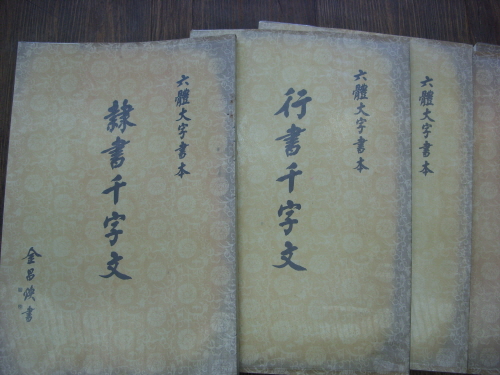 六體大字書本
隸書千字文
金昌煥書
六體大字書本
行書千字文
六體大字書本